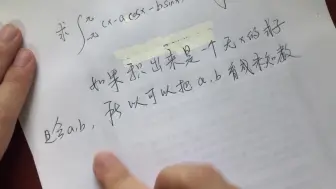 求 ∫_{-π}^{π} (x-a cosx-b sinx
如果积出来是一个无x的式子
且含a,b, 所以可以把a,b看成未知数